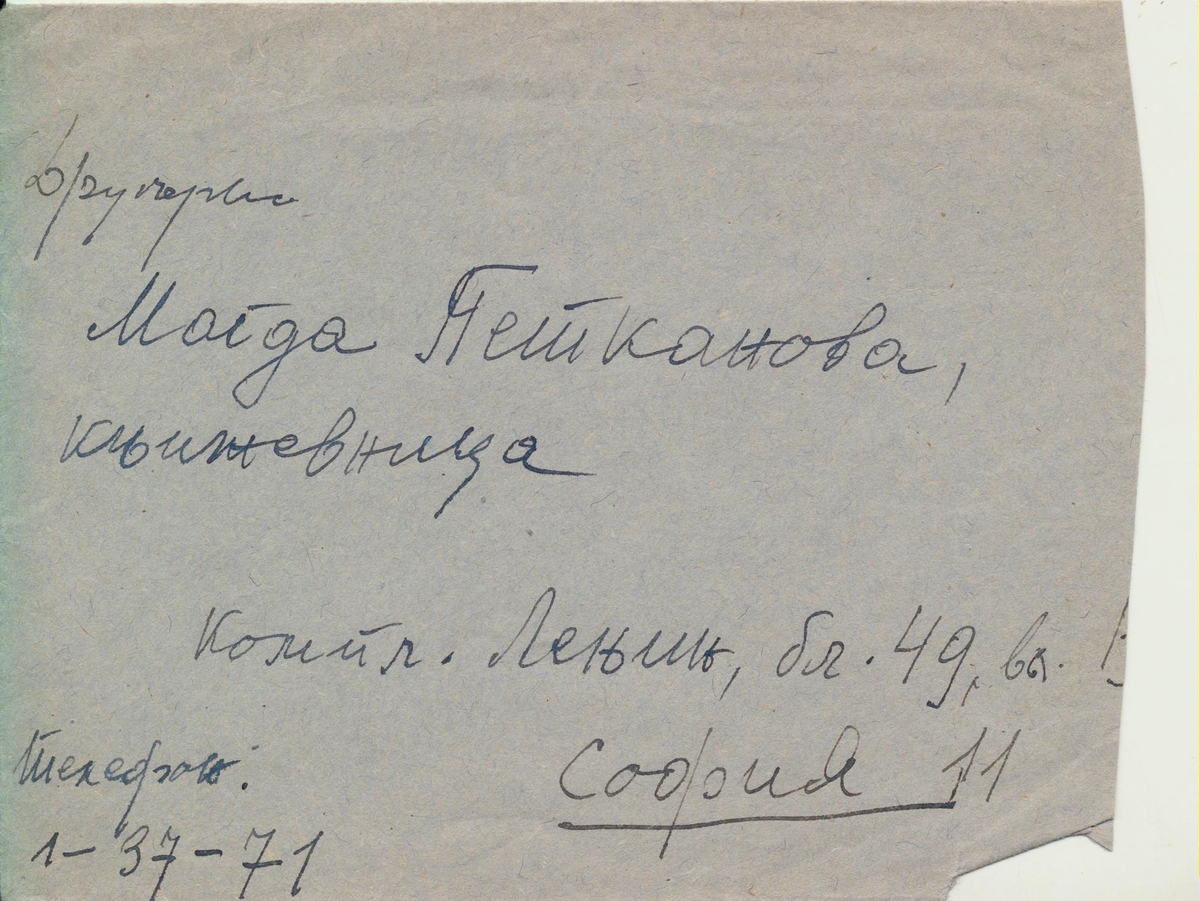 Другарка
Магда Петканова,
книжевница
Компл. Ленин, бл. 49, вх.
София 11
Телефон:
1-37-71